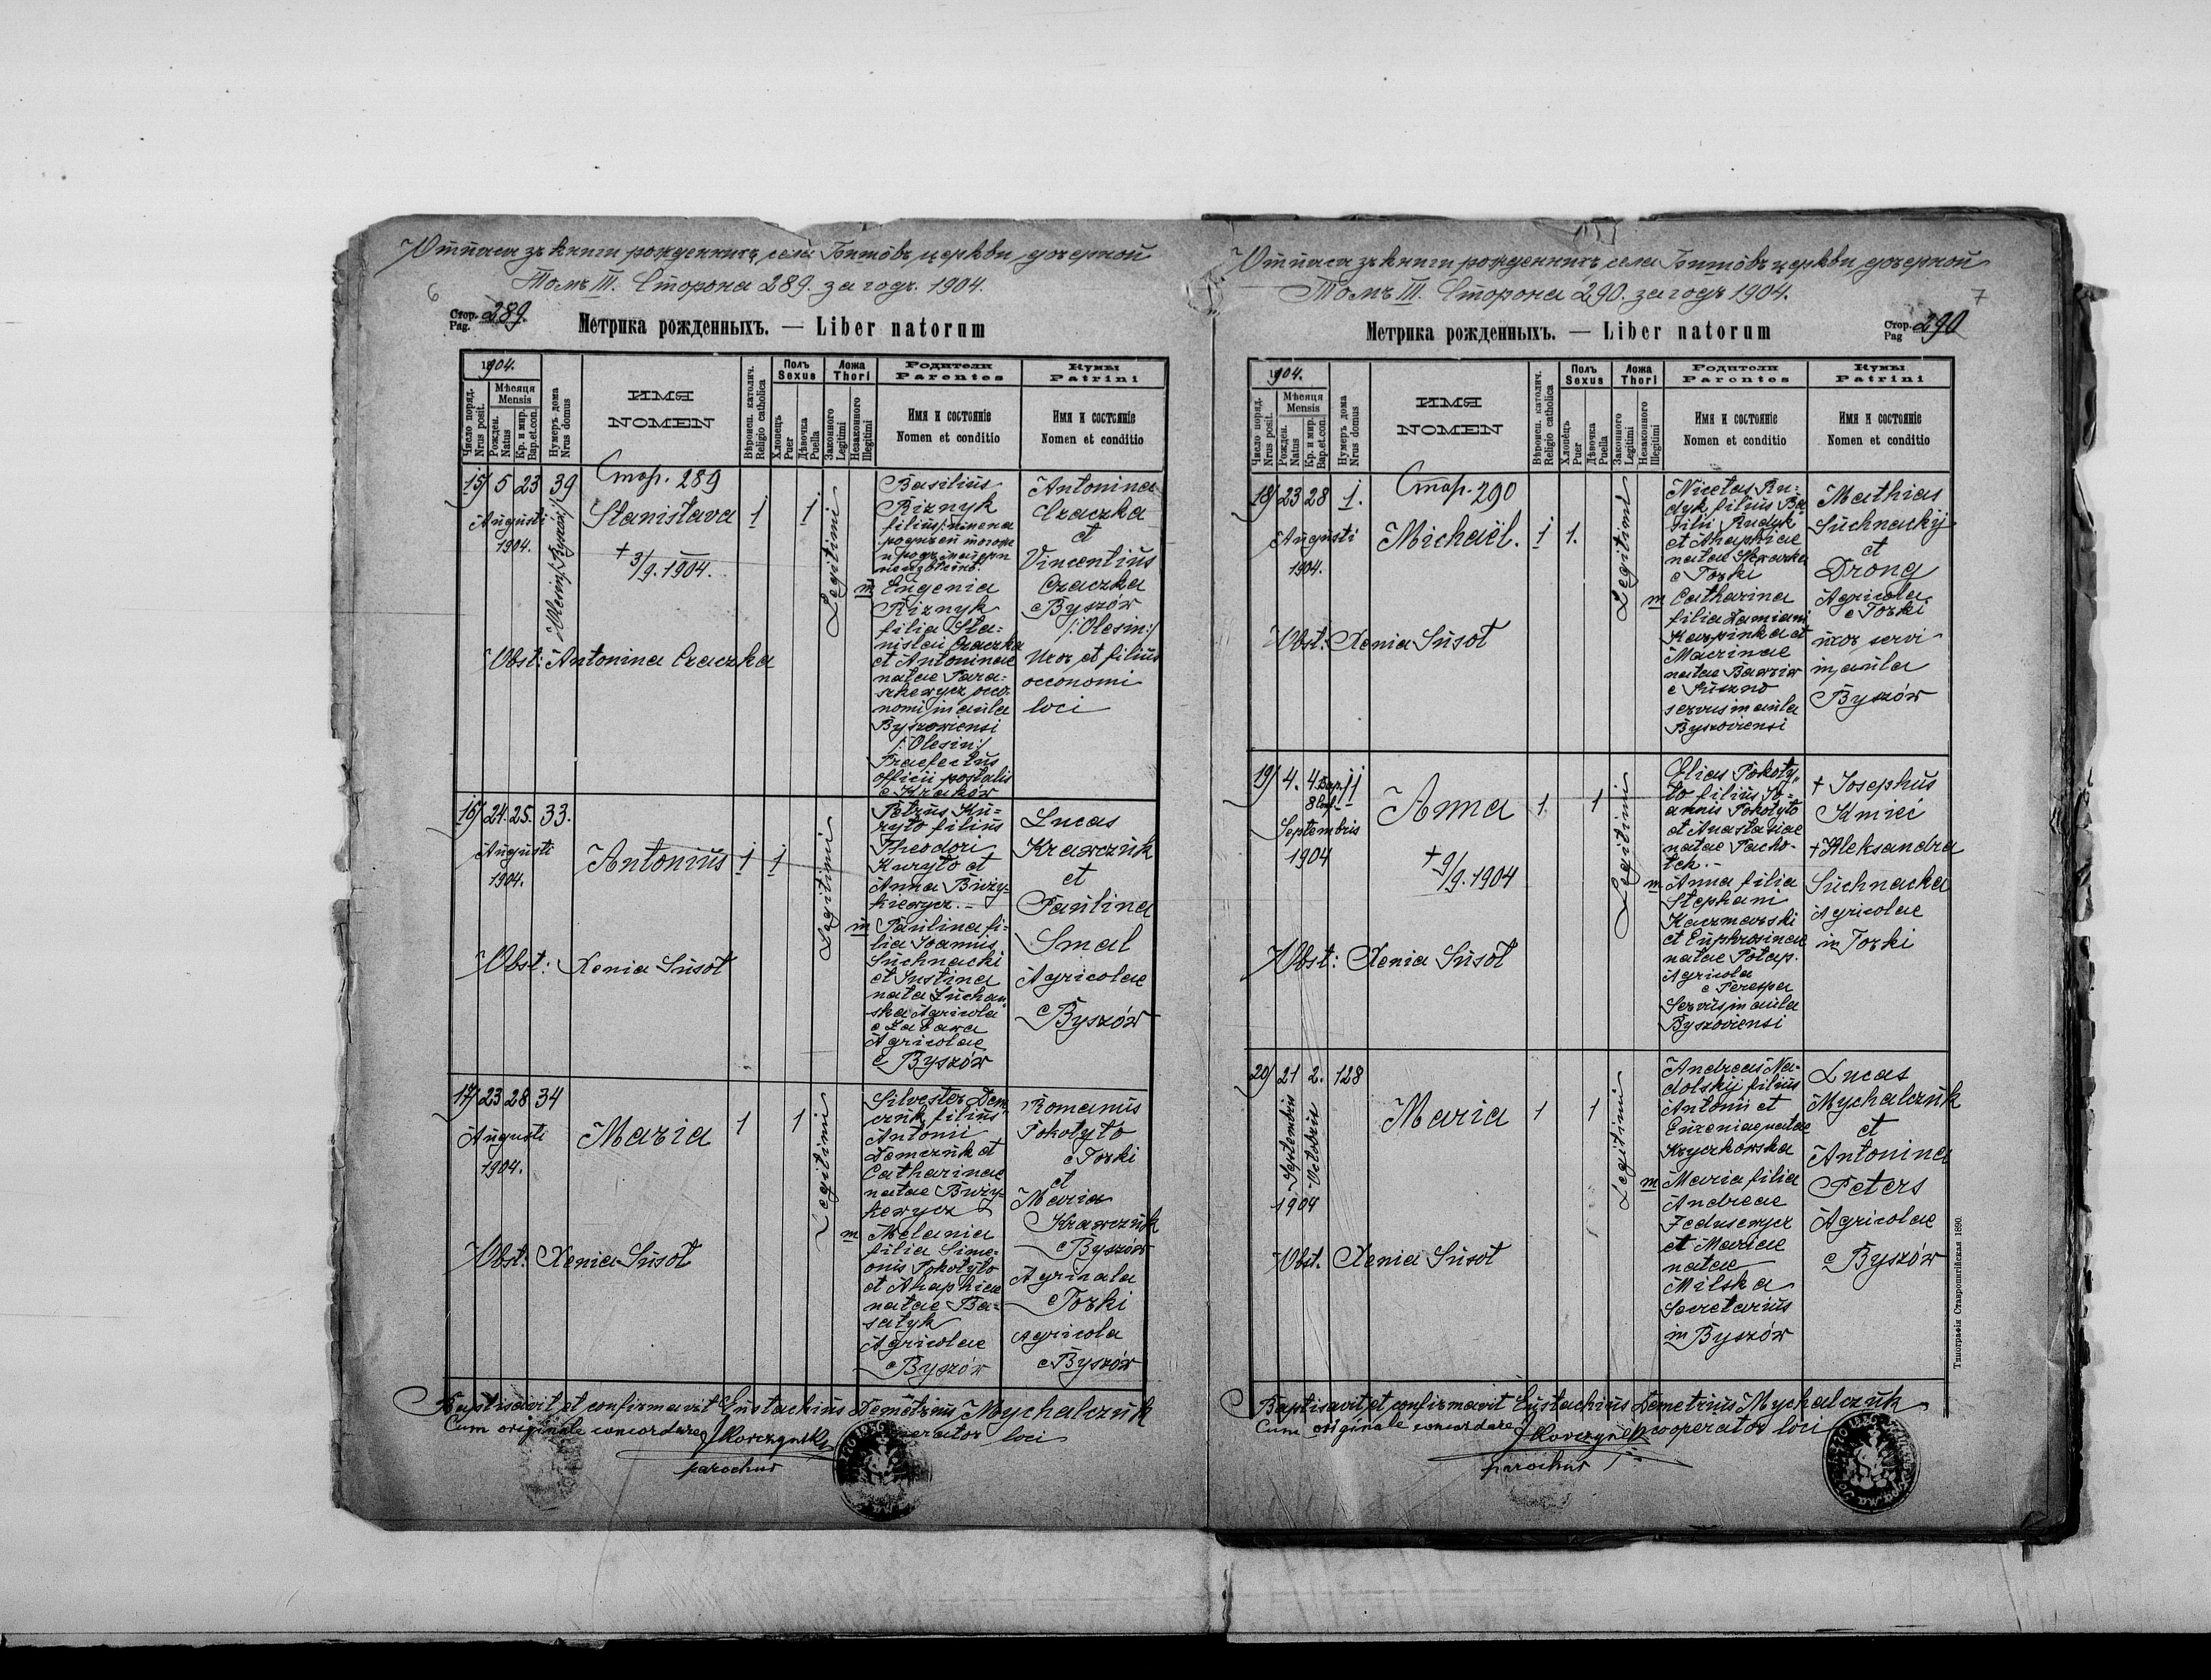 Отписъ зъ книги рожденныхъ села Бишôвъ церкви дочерной
Томъ III. Сторона 289. за годъ. 1904.
6
Стор. Pag. 289.
Метрика рожденныхъ. — Liber natorum
1904.
Число поряд. Nrus posit.
Мѣсяця Mensis
Рожден. Natus
Кр. и мир. Bap.et.con.
Нумеръ дома Nrus domus
ИМЯ
NOMEN
Вѣроисп. католич. Religio catholica
Полъ Sexus
Хлопецъ Puer
Дѣвочка Puella
Ложа Thori
Законного Legitimi
Незаконного Illegitimi
Родители
Parentes
Имя и состояніе
Nomen et conditio
Кумы
Patrini
Имя и состояніе
Nomen et conditio
15/ 5 23 39
Augusti
1904.
Стор. 289
Stanisława 1 1
+ 3/9. 1904.
Legitimi
Obst: Antonina Czaczka
Basilius
Riznyk
filius
m Eugenia
Riznyk
filia Sta=
nislai Czaczka
et Antoninae
natae Para=
schewycz oeco
nomi in aula
Byszoviensi
/:Olesin:/
Praefectus
officii postalis
e Kraków
Antonina
Czaczka
et
Vincentius
Czaczka
e Byszów
/:Olesin:/
Uxor et filius
oeconomi
loci
16/ 24. 25. 33.
Augusti
1904.
Antonius 1 1
Legitimi
Obst: Xenia Susoł
Petrus Ku=
ryło filius
Theodori
Kuryło et
Anna
m Paulina fi=
lia Joannis
Suchnacki
et Justina
nata
ska Agricola
e Zabawa
Agricolae
e Byszów
Lucas
Krawczuk
et
Paulina
Smal
Agricolae
e Byszów
17/ 23 28 34
Augusti
1904.
Maria 1 1
Legitimi
Obst: Xenia Susoł
Silvester Dem
czuk filius
Antonii
Demczuk et
Catharinae
natae
kewycz
m Melania
filia Sime=
onis Pokotyło
et Ahaphiae
natae Ba=
satyk
Agricolae
e Byszów
Romanus
Pokotyło
e Torki
et
Maria
Krawczuk
e Byszów
Agricola
e Torki
agricola
e Byszów
Baptisavit et confirmavit Eustachius Demetrius Mychalczuk
Cum originale concordare loci
parochus
Отписъ зъ книги рожденныхъ села Бишôвъ церкви дочерной
Томъ III. Сторона 290. за годъ 1904.
7
Метрика рожденныхъ. — Liber natorum
Стор. Pag 290
1904.
Число поряд. Nrus posit.
Мѣсяця Mensis
Рожден. Natus
Кр. и мир. Bap.et.con.
Нумеръ дома Nrus domus
ИМЯ
NOMEN
Вѣроисп. католич. Religio catholica
Полъ Sexus
Хлопецъ Puer
Дѣвочка Puella
Ложа Thori
Законного Legitimi
Незаконного Illegitimi
Родители
Parentes
Имя и состояніе
Nomen et conditio
Кумы
Patrini
Имя и состояніе
Nomen et conditio
18/ 23 28 1.
Augusti
1904.
Стор. 290
Michaël. 1 1.
Legitimi
Obst: Xenia Susoł
Nicetas Ru=
dyk filius Ba
silii Rudyk
et Ahaphiae
natae
e Torki
m Catharina
filia Damiani
Karpinka et
Macrinae
natae Bawziw
e Suszno
servus in aula
Byszoviensi
Mathias
Suchnackij
et
Drong
Agricola
e Torki
uxor servi
in aula
Byszów
19/ 4. 4 Bap. 8 Conf. 11
Septembris
1904
Anna 1 1
+ 9/9. 1904
Legitimi
Obst: Xenia Susoł
Elias Pokoty„
ło filius Jo=
annis Pokotyło
et Anastasiae
natae Pacho-
łek.-
m Anna filia
Stephani
Kaczmarski
et Euphrosinae
natae Potap.
Agricola
e Perespa
Servus in aula
Byszoviensi
+ Josephus
Kmieć
+ Aleksandra
Suchnacka
Agricolae
in Torki
20/ 21 2. 128
Septembris
Octobris
1904
Maria 1 1
Legitimi
Obst. Xenia Susoł
Andreas Na=
dolskij filius
Antonii et
Eugeniae natae
Kryczkowska
m Maria filia
Andreae
Fedusewycz
et Mariae
natae
Milska
Secretarius
in Byszów
Lucas
Mychalczuk
et
Antonina
Peters
Agricolae
e Byszów
Baptisavit et confirmavit Eustachius Demetrius Mychalczuk
Cum originale concordare cooperator loci
parochus
Типографія Ставропигійская 1890.